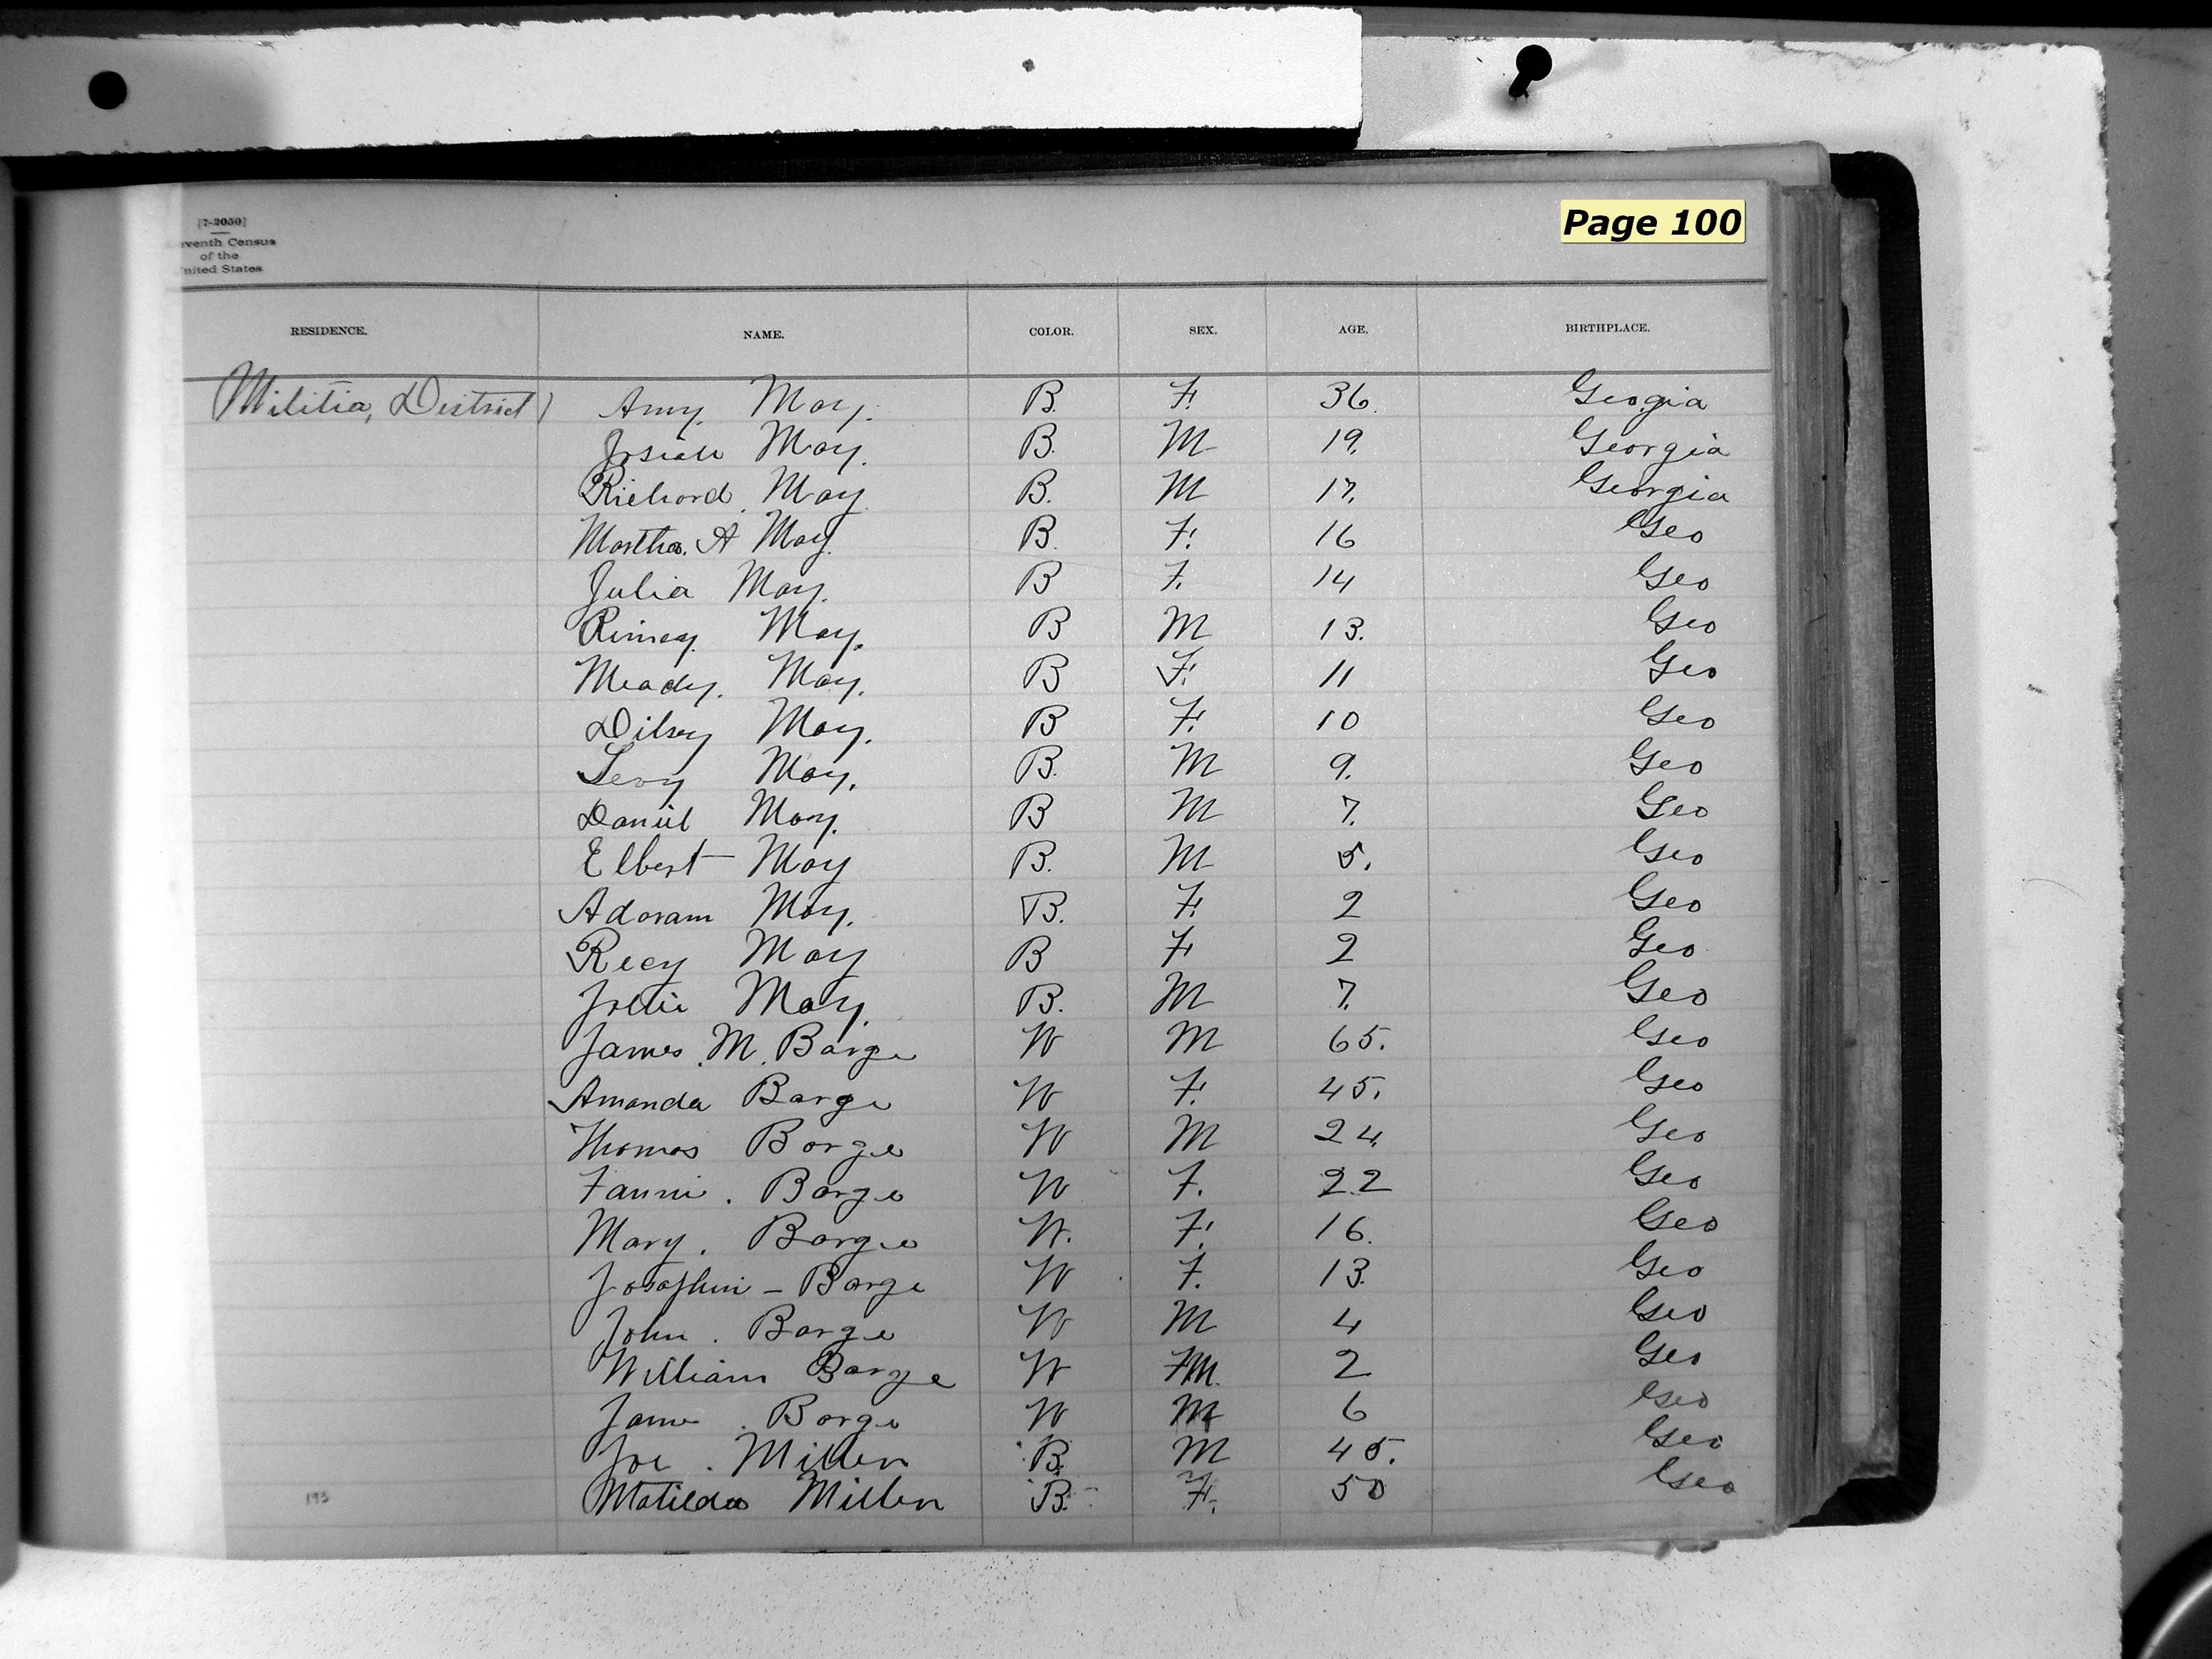 [7-2050]
eventh Census
of the
nited States
Page 100
RESIDENCE. NAME. COLOR. SEX. AGE. BIRTHPLACE.
Militia, District) Amy May. B. F. 36. Geogia
Josiah May. B. M 19. Georgia
Richard May B. M 17. Georgia
Martha. A May. B. F. 16 Geo
Julia May. B F. 14 Geo
May. B M 13. Geo
Meady. May. B F. 11 Geo
Dilsey May. B F. 10 Geo
Levy May. B. M 9. Geo
Daniel May. B M 7. Geo
Elbert May B. M 5. Geo
Adoram May. B. F. 2 Geo
Recy May B F. 2 Geo
May. B. M 7. Geo
James. M. Barge W M 65. Geo
Amanda Barge W F. 45. Geo
Thomas Barge W M 24 Geo
Fannie. Barge W F. 22 Geo
Mary. Barge W. F. 16. Geo
Josophin - Barge W F. 13. Geo
John. Barge W M 4 Geo
William Barge W M. 2 Geo
Barge W M 6 Geo
Joe. Millen B. M 45. Geo
193 Matilda Millen B. F. 50 Geo